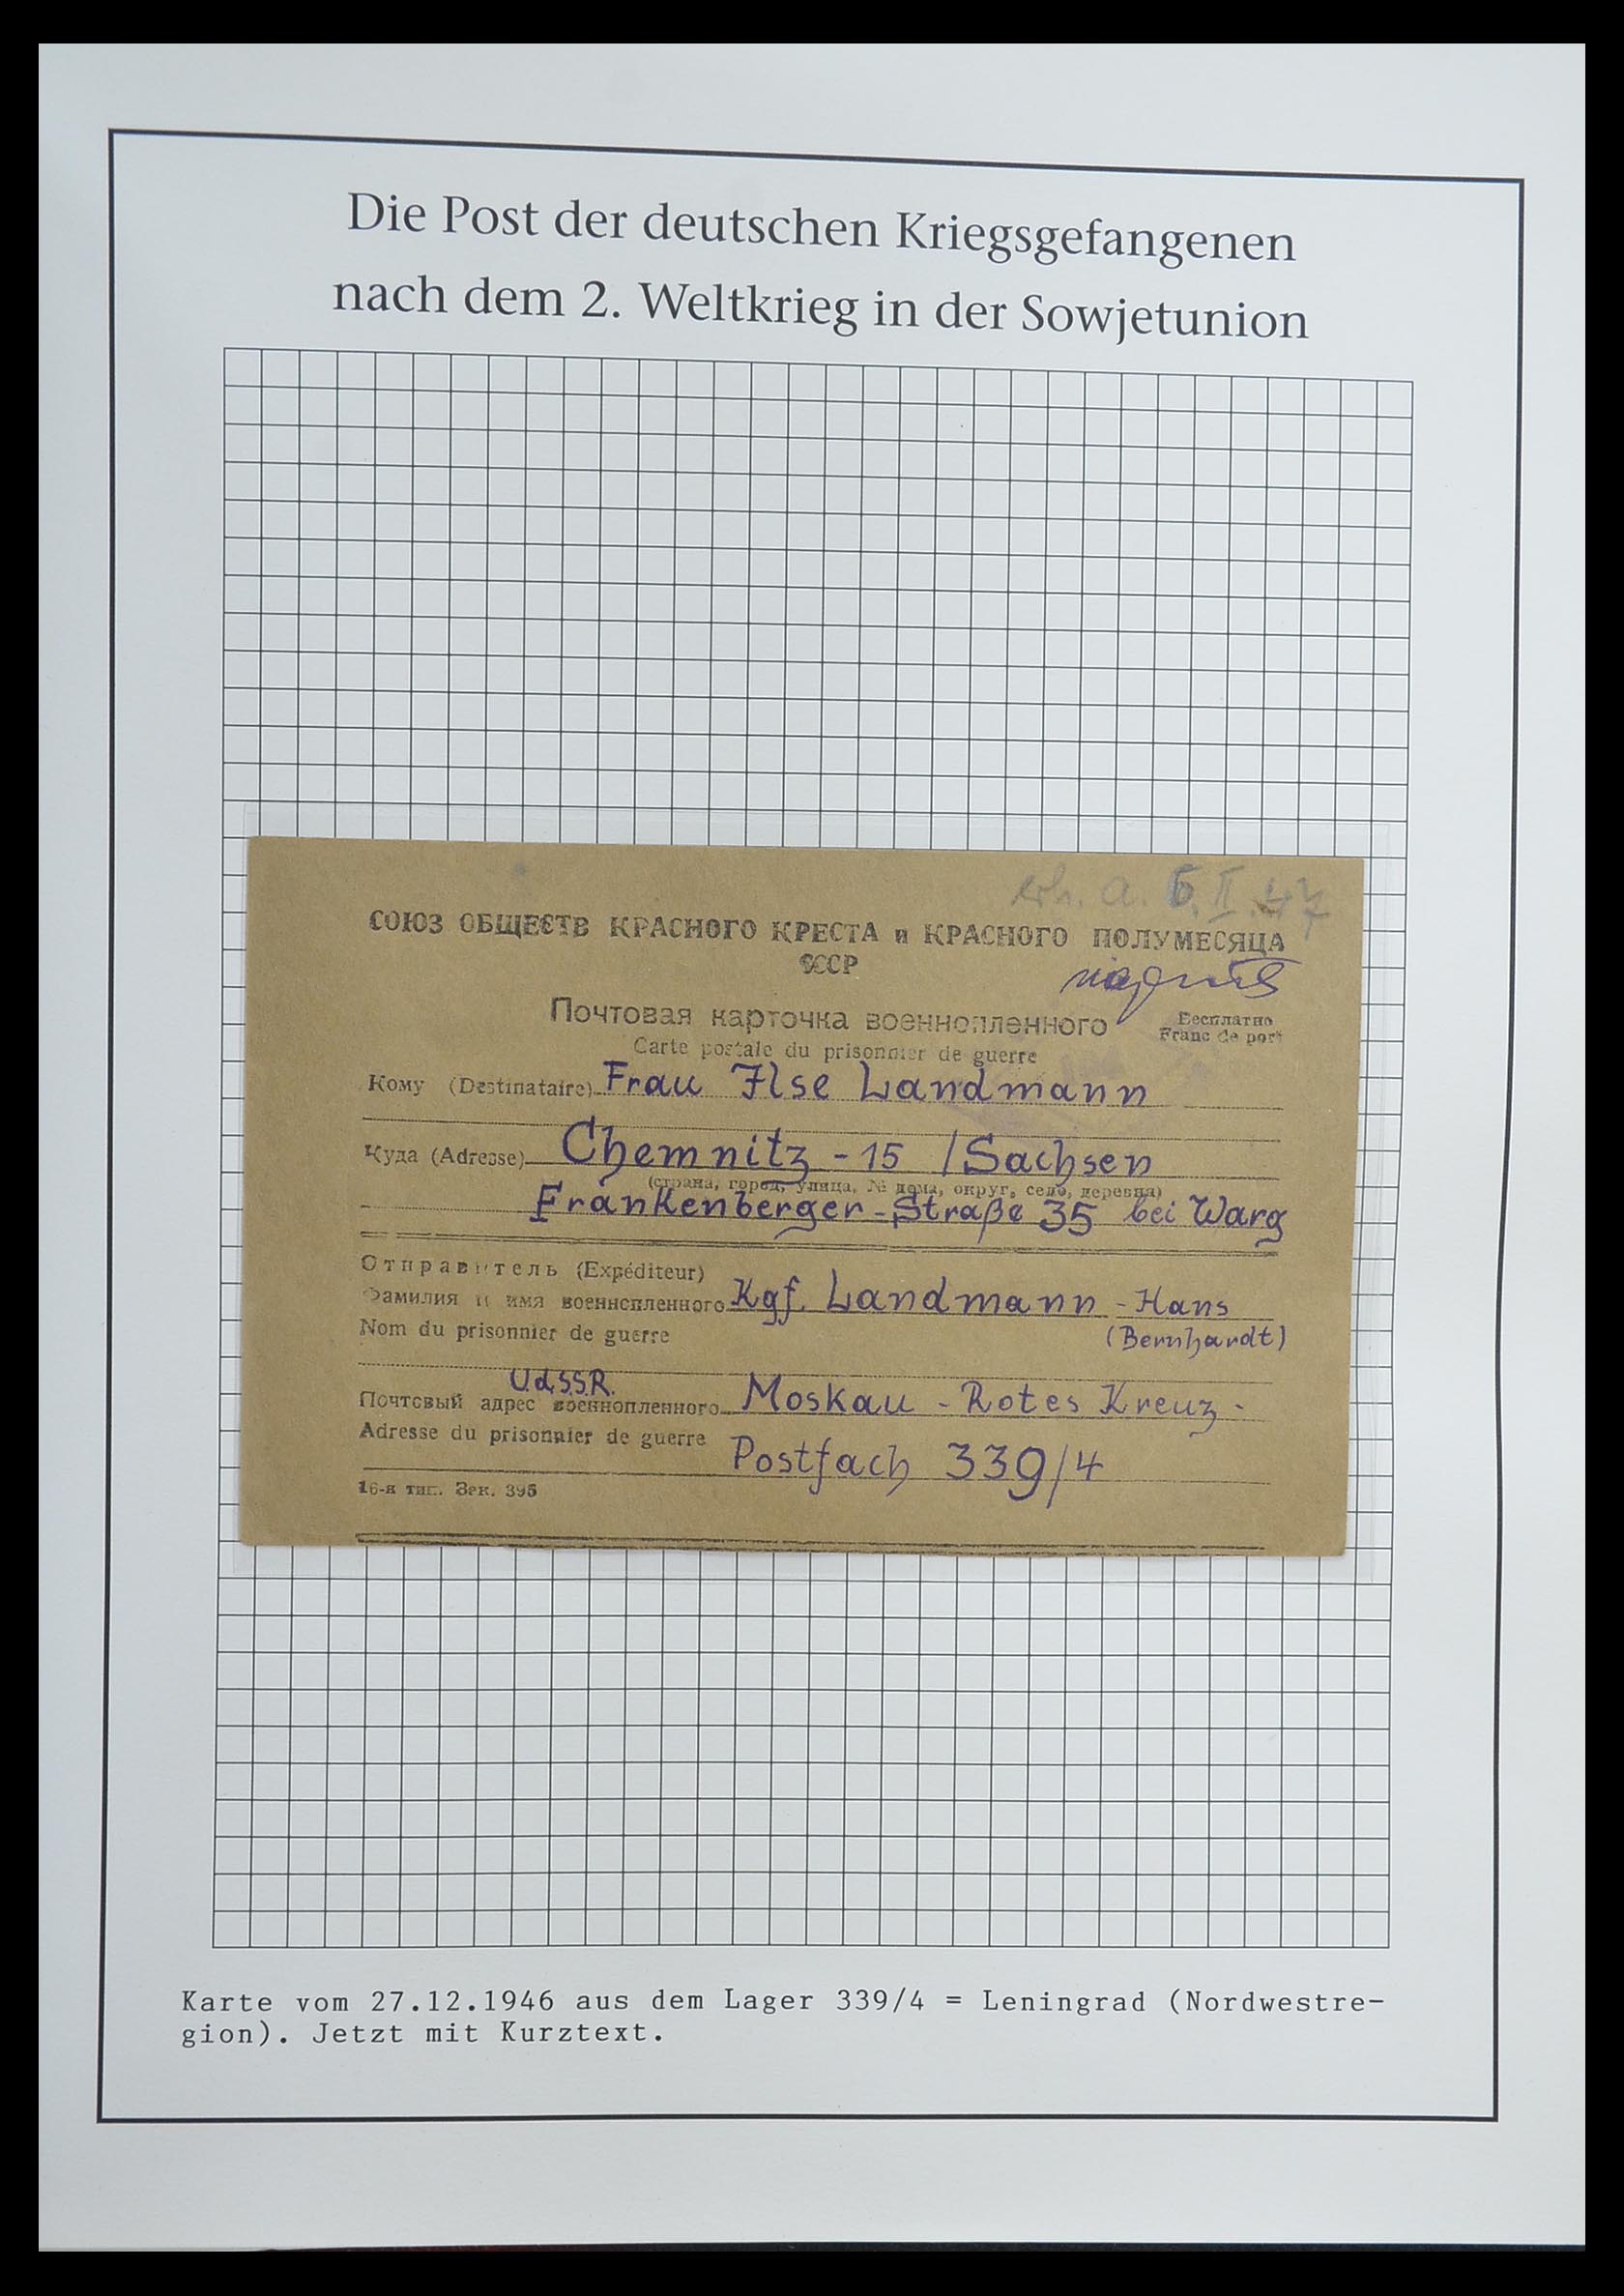 Die Post der deutschen Kriegsgefangenen
nach dem 2. Weltkrieg in der Sowjetunion
erh. a. 6. II. 47
СОЮЗ ОБЩЕСТВ КРАСНОГО КРЕСТА и КРАСНОГО ПОЛУМЕСЯЦА
СССР
Почтовая карточка военнопленного
Бесплатно
Carte postale du prisonnier de guerre
Franc de port
Кому (Destinataire) Frau Ilse Landmann
Куда (Adresse) Chemnitz - 15 / Sachsen
(страна, город, улица, № дома, округ, село, деревня)
Frankenberger - Straße 35 bei Warg
Отправитель (Expéditeur)
Фамилия и имя военнопленного Kgf. Landmann - Hans
Nom du prisonnier de guerre (Bernhardt)
U.d.S.S.R.
Почтовый адрес военнопленного Moskau - Rotes Kreuz -
Adresse du prisonnier de guerre Postfach 339/4
16-я тип. Зак. 395
Karte vom 27.12.1946 aus dem Lager 339/4 = Leningrad (Nordwestre-
gion). Jetzt mit Kurztext.